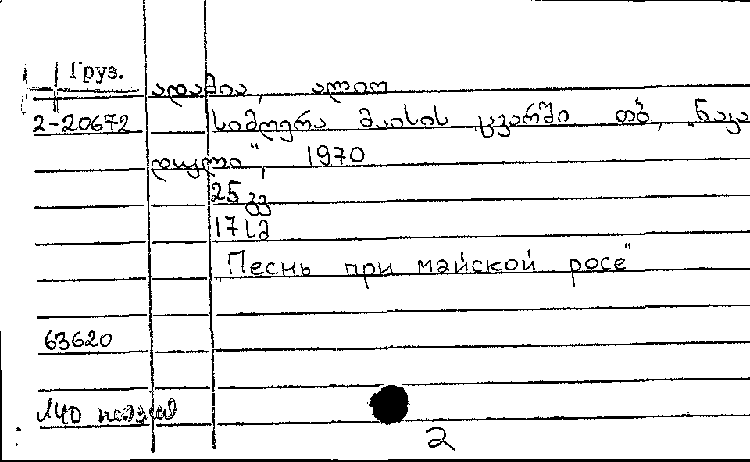 Груз.
ადამია, ალიო
2-20672 სიმღერა მაისის ცვარში თბ, „ნაკა
დული", 1970
25 გვ
17 სმ
„Песнь при майской росе"
63620
140
2